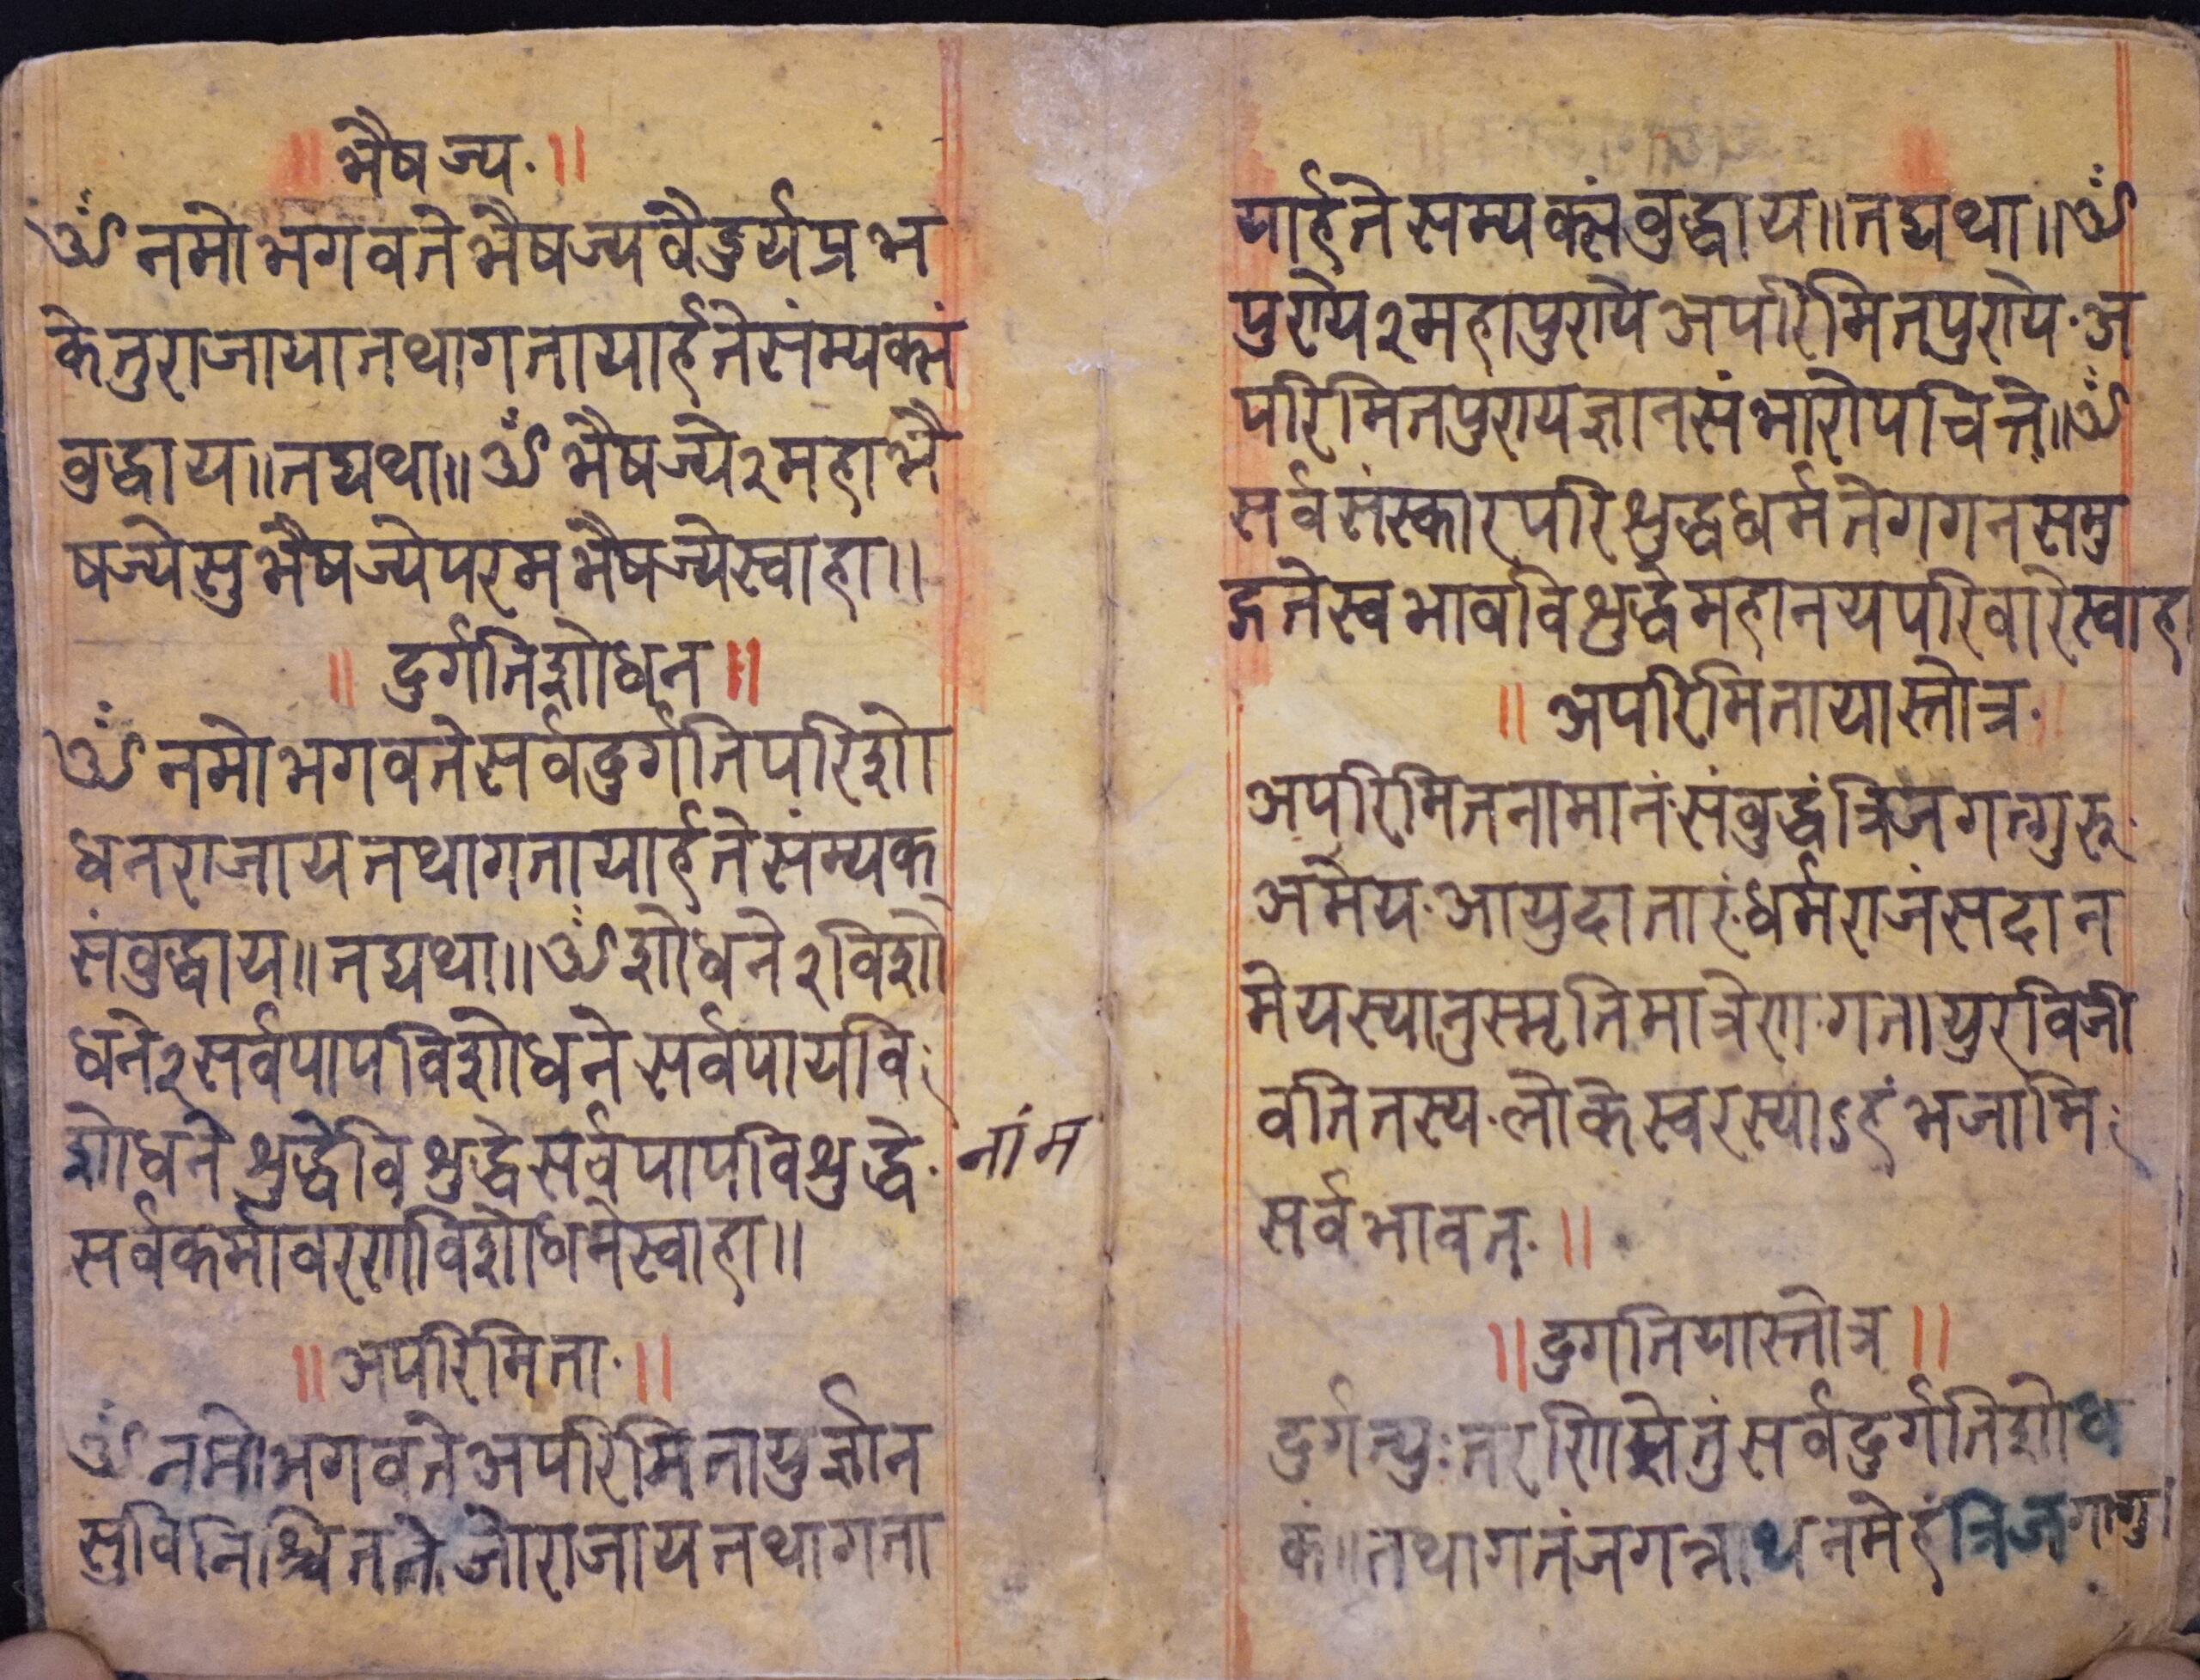 ॥ भैषज्य. ॥
ॐ नमो भगवते भैषज्यवैडुर्यप्रभ
केतुराजाया तथागतायार्हते संम्यक्सं
वुद्धाय ॥ तद्यथा ॥ ॐ भैषज्ये २ महाभै
षज्ये सुभैषज्ये परमभैषज्ये स्वाहा ॥
॥ दुर्गतिशोधन ॥
ॐ नमो भगवते सर्वदुर्गतिपरिशो
धनराजाय तथागतायार्हते संम्यक्
संवुद्धाय ॥ तद्यथा ॥ ॐ शोधने २ विशो
धने २ सर्वपापविशोधने सर्वपायवि:
शोधने शुद्धे विशुद्धे सर्वपापविशुद्धे. नांम
सर्वकर्मावरणविशोधमे स्वाहा ॥
॥ अपरिमिता. ॥
ॐ नमो भगवते अपरिमितायुर्ज्ञान
सुविनिश्चिततेजोराजाय तथागता
यार्हते सम्यक्संवुद्धाय ॥ तद्यथा ॥ ॐ
पुण्ये २ महापुण्ये अपरिमितपुण्ये. अ
परिमितपुण्यज्ञानसंभारोपचित्ते ॥ ॐ
सर्वसंस्कारपरिशुद्धधर्मते गगनसमु
द्गते स्वभावविशुद्धे महानयपरिवारे स्वाहा
॥ अपरिमितायास्तोत्र. ॥
अपरिमितनामानं. संवुद्धं त्रिजगत्गुरु.
अमेय. आयुदातारं. धर्मराजं सदा न
मे यस्यानुस्मृतिमात्रेण. गतायुरविजी
वति तस्य. लोकेस्वरस्याऽहं भजामि:
सर्वभावन. ॥
॥ दुगतियास्तोत्र ॥
दुर्गत्यु: तरणिसेतुं सर्वदुर्गतिशोध
कं ॥ तथागतं जगन्नाथ नमेहं त्रिजगत्गु।